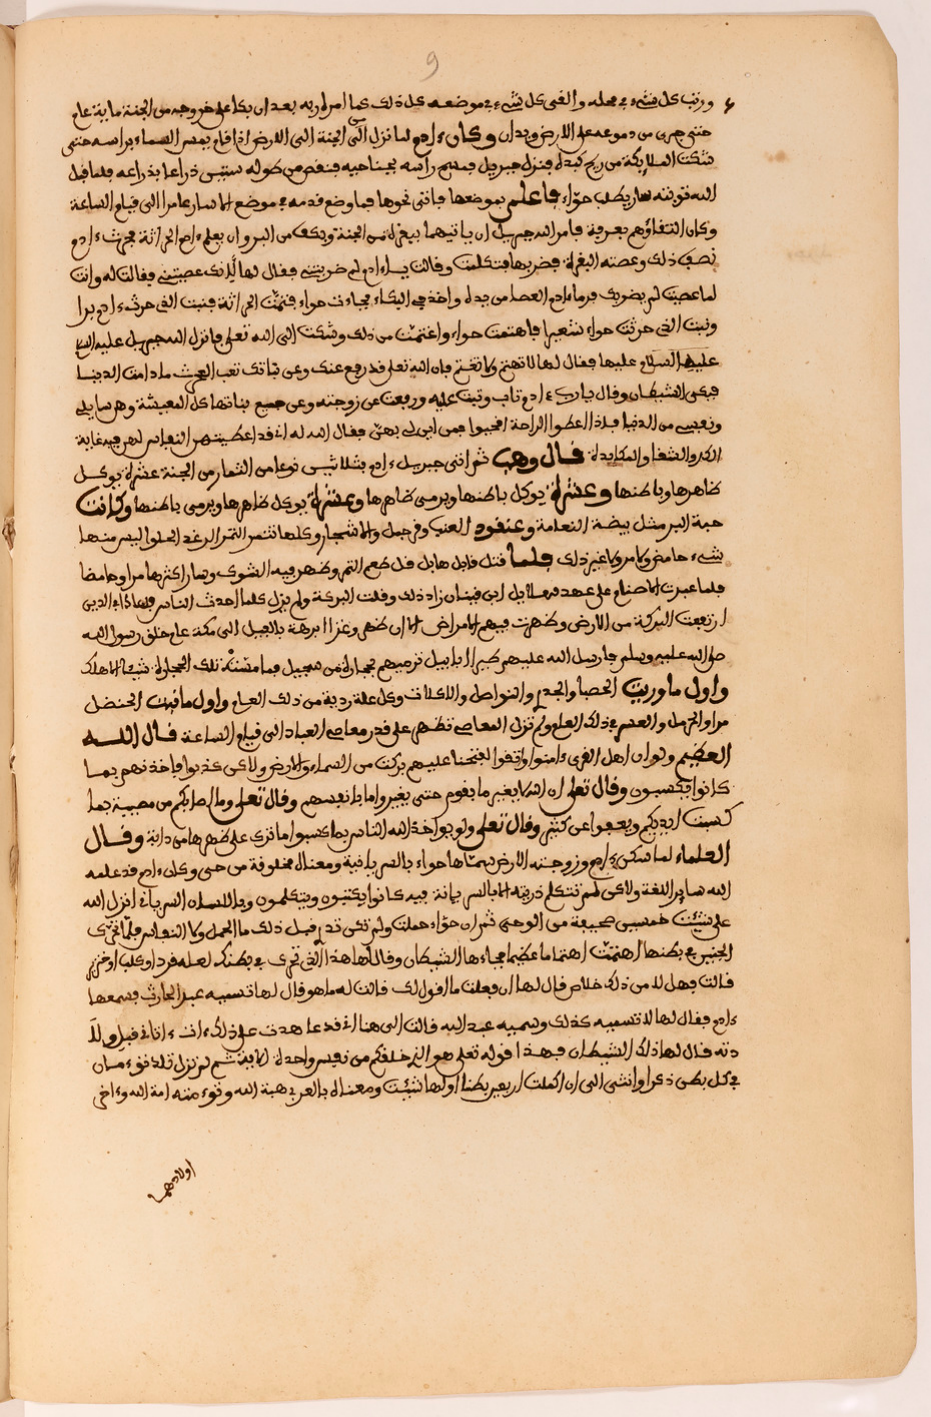 9
ورتب كل شيء في محله والغى كل شيء في موضعه كل ذلك كما امره ربه بعد ان بكا على خروجه من الجنة ماية عام
حتى جرى من دموعه على الارض وكان ءادم لما نزل من الجنة الى الارض اذا قام يمس السماء براسه حتى
شكت الملايكة من ريح فنزل جبريل فمسح راسه بجناحيه فنقص من طوله ستين ذراعا بذراعه فلما قبل
الله توبته سار يطلب حواء فاعلم بموضعها فاتى نحوها فما وضع قدمه في موضع الا سار عامرا الى قيام الساعة
وكان التقاؤهم بعرفة فامر الله جبريل ان ياتيهما ببقر من الجنة وبكف من البر وان يعلم ءادم الحراثة فحرث ءادم
نصف ذلك وعصته البقرة فضربها فتكلمت وقالت يا ءادم لم ضربتني فقال لها لانك عصيتني فقالت له وانت
لما عصيت لم يضربك فرما ءادم العصا من يده واخذ في البكاء فجاءت حواء فتمت الحراثة فنبت الذي حرث ءادم برا
ونبت الذي حرثت حواء شعيرا فاهتمت حواء واغتمت من ذلك وشكت الى الله تعلى فانزل الله جبريل عليه السلام
عليها السلام عليها فقال لها لا تهتم ولا تغتم فان الله تعلى قد رفع عنك وعن بناتك تعب الحرث ما دامت الدنيا
فبكى الشيطان وقال يا رب ءادم تاب وتبت عليه ورفعت عن زوجته وعن جميع بناتها كل المعيشة
ونصيبي من الدنيا فاذا اعطوا الراحة فمن اين لي بهن فقال الله له اني قد اعطيتهن النفاس لهن فيه غاية
الكد والشقا والمكابدة قال وهب ثم اتى جبريل ءادم بثلاثين نوعا من الثمار من الجنة عشرة يوكل
ظاهرها وباطنها وعشرة يوكل باطنها ويرمى ظاهرها وعشرة يوكل ظاهرها ويرمى باطنها وكانت
حبة البر مثل بيضة النعامة وعنقود العنب وقر جمل والاشجار وكلها تثمر الثمر الرغد الحلو اليس منها
شيء حامض ولا مر ولا غير ذلك فلما قتل قابل هابل قل طعم الثمر وظهر فيه الشوك وصار اكثرها مرا وحامضا
فلما عبدت الاصنام على عهد مهلايل ابن قينان زاد ذلك وقلت البركة ولم يزل كلما احدث الناس
ارتفعت البركة من الارض وظهرت فيهم الامراض الا ان ظهر وغزا ابرهة بالفيل الى مكة عام خلق رسول الله
صلى الله عليه وسلم فارسل الله عليهم طيرا ابابيل ترميهم بحجارة من سجيل فما مست تلك الحجارة شيئا الا هلك
واول ما وريت الحصبا والجدري والنواصل والاكلات وكل علة ردية من ذلك العام واول ما نبت الحنضل
مرا والحرمل والعشر في ذلك العام ولم تزل المعاصي تظهر على قدر معاصي العباد الى قيام الساعة قال الله
العظيم ولو ان اهل القرى ءامنوا واتقوا لفتحنا عليهم بركت من السماء والارض ولاكن كذبوا فاخذنهم بما
كانوا يكسبون وقال تعلى ان الله لا يغير ما بقوم حتى يغيروا ما بانفسهم وقال تعلى وما اصابكم من مصيبة بما
كسبت ايديكم ويعفوا عن كثير وقال تعلى ولو يواخذ الله الناس بما كسبوا ما ترك على ظهرها من دابة وقال
العلماء لما سكن ءادم وزوجته الارض سماها حواء بالسريانية ومعناه مخلوقة من حي وكان ءادم قد علمه
الله ساير اللغة ولاكن لم تتكلم ذريته الا بالسريانة فيه كانوا يكتبون ويتكلمون وباللسان السرياني انزل الله
على شيث خمسين صحيفة من الوحي ثم ان حواء حملت ولم تكن تدر قبل ذلك ما الحمل ولا النفاس فلما تحرك
الجنين في بطنها اهتمت اهتماما عظيما فجاءها الشيطان وقال لها هذا الذي تحرك في بطنك لعله قرد او كلب او خنزير
قالت فهل لك من ذلك خلاص قال لها ان فعلت ما اقول لك قالت له ما هو قال لها تسميه عبد الحارث فسمعها
ءادم فقال لها لا تسميه كذلك وسميه عبد الله قالت اني هنا اني قد عاهدت على ذلك
دته قال لها ذلك الشيطان فهذا قوله تعلى هو الذي خلقكم من نفس واحدة الاية ثم لم تزل تلد توءمان
في كل بطن ذكرا وانثى الى ان اكملت اربعين بطنا اولها شيث ومعناه بالعربي هبة الله وتوءمته امة الله وءاخر
اولادهما